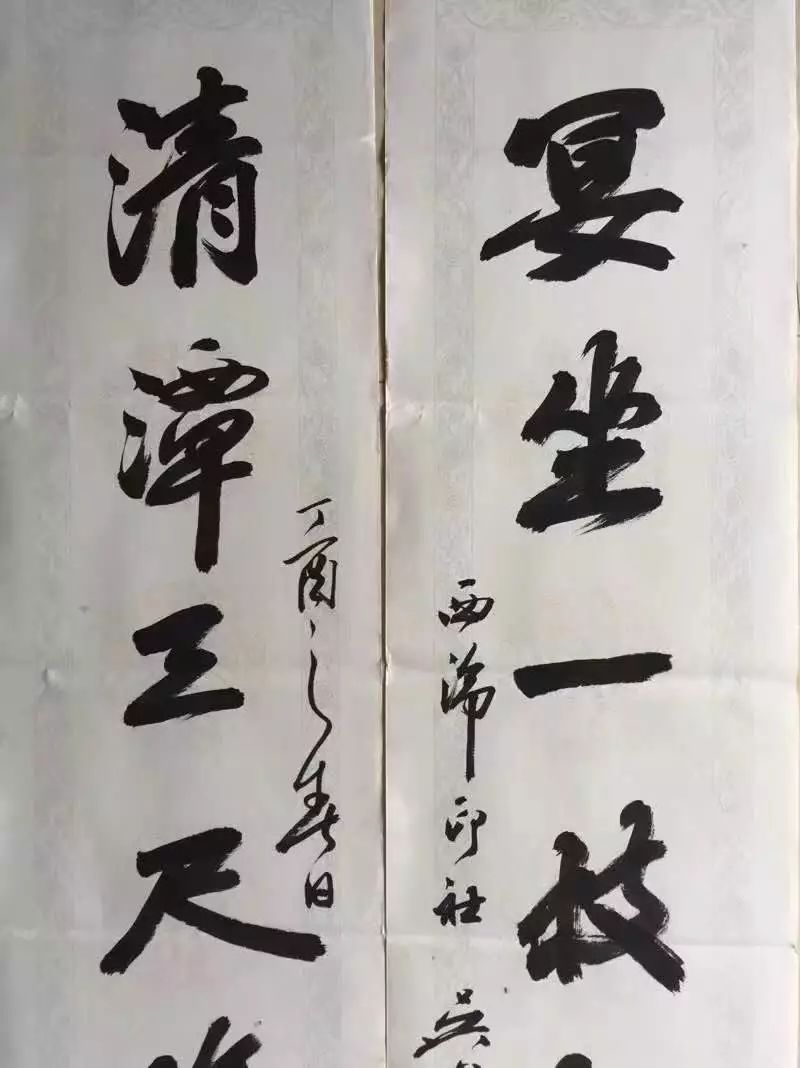 宴坐一枝
西泠印社 吴
清潭三尺
丁酉之春日